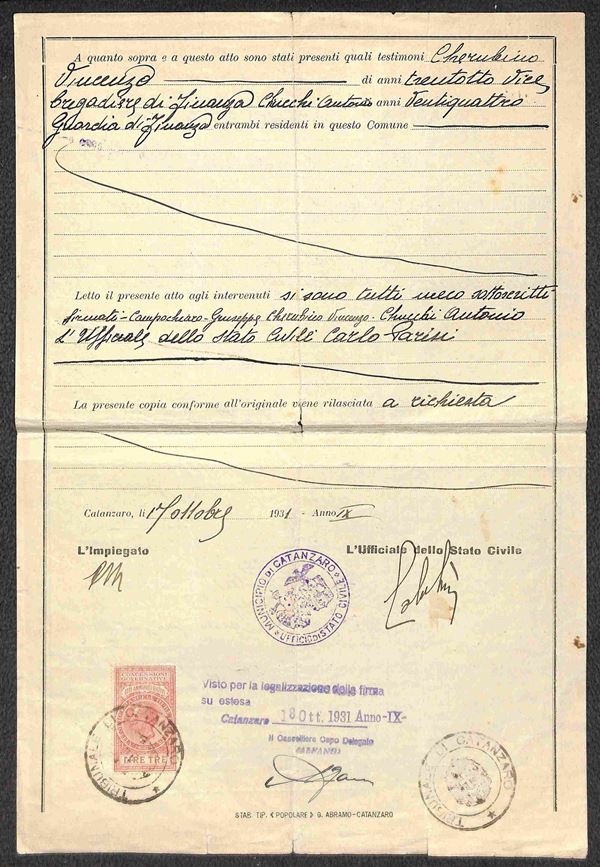 A quanto sopra e a questo atto sono stati presenti quali testimoni Cherubino
Vincenzo di anni trentotto Vice
brigadiere di finanza Chucchi Antonio anni Ventiquattro
Guardia di finanza entrambi residenti in questo Comune
Letto il presente atto agli intervenuti si sono tutti meco sottoscritti
firmati - Campochiaro - Giuseppe Cherubino Vincenzo - Chucchi Antonio
L'Ufficiale dello Stato Civile Carlo Parisi
La presente copia conforme all'originale viene rilasciata a richiesta
Catanzaro, li 17 ottobre 1931 - Anno IX
L'Impiegato L'Ufficiale dello Stato Civile
MUNICIPIO DI CATANZARO
UFFICIO DI STATO CIVILE
CONCESSIONI
GOVERNATIVE
LIRE TRE
TRIBUNALE DI CATANZARO
Visto per la legalizzazione della firma
su estesa
Catanzaro 18 Ott. 1931 Anno-IX-
Il Cancelliere Capo Delegato
TRIBUNALE DI CATANZARO
STAB. TIP. «POPOLARE» G. ABRAMO-CATANZARO